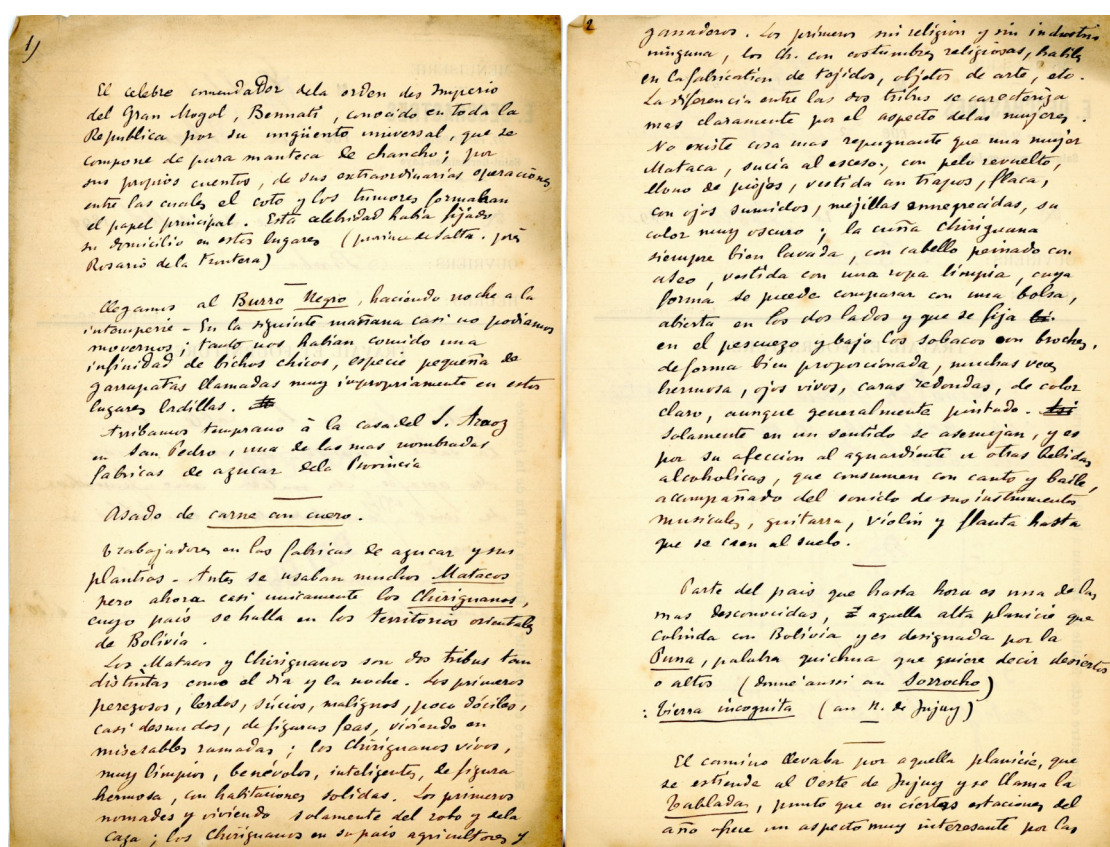 1)
El celebre comendador dela orden des Imperio
del Gran Mogol, Bennati, conocido en toda la
Republica por su ungüento universal, que se
compone de pura manteca de chancho; por
sus propios cuentos, de sus extraordinarias operaciones
entre las cuales el coto y los tumores formaban
el papel principal. Esta celebridad habia fijado
su domicilio en estos lugares (
Rosario de la Frontera)
llegamos al Burro Negro, haciendo noche a la
intemperie - En la siguiente mañana casi no podiamos
movernos; tanto nos habian comido una
infinidad de bichos chicos, especie pequeña de
garrapatas llamadas muy impropriamente en estos
lugares ladillas.
Arribamos temprano à la casa del S. Araoz
en San Pedro, una de las mas nombradas
fabricas de azucar dela Provincia
Asado de carne con cuero.
trabajadores en las fabricas de azucar y sus
plantios - Antes se usaban muchos Matacos
pero ahora casi unicamente los Chiriguanos,
cuyo pais se halla en los territorios orientales
de Bolivia.
Los Matacos y Chiriguanos son dos tribus tan
distintas como el dia y la noche. Los primeros
perezosos, lerdos, súcios, malignos, poco dóciles,
casi desnudos, de figuras feas, viviendo en
miserables ramadas; los Chiriguanos vivos,
muy limpios, benévolos, inteligentes, de figura
hermosa, con habitaciones solidas. Los primeros
nomades y viviendo solamente del robo y dela
caza; los Chiriguanos en su pais agricultores y
2
ganaderos. Los primeros sin religion y sin industria
ninguna, los Ch. con costumbres religiosas, habiles
en la fabrication de tejidos, objetos de arte, etc.
La diferencia entre las dos tribus se caracteriza
mas claramente por el aspecto delas mujeres.
No existe cosa mas repugnante que una mujer
Mataca, sucia al esceso, con pelo revuelto,
lleno de piojos, vestida con trapos, flaca,
con ojos sumidos, mejillas ennegrecidas, su
color muy oscuro; la cuña Chiriguana
siempre bien lavada, con cabello peinado con
aseo, vestida con una ropa limpia, cuya
forma se puede comparar con una bolsa,
abierta en los dos lados y que se fija
en el pescuezo y bajo los sobacos con broches,
de forma bien proporcionada, muchas veces
hermosa, ojos vivos, caras redondas, de color
claro, aunque generalmente pintado.
Solamente en un sentido se asemejan, y es
por su afeccion al aguardiente u otras bebidas
alcoholicas, que consumen con canto y baile,
acompañado del sonido de sus instrumentos
musicales, guitarra, violin y flauta hasta
que se caen al suelo.
Parte del pais que hasta hora es una de las
mas desconocidas, aquella alta planicie que
colinda con Bolivia y es designada por la
Puna, palabra quichua que quiere decir desiertos
o altos (donne aussi au Sorrocho)
: tierra incognita (au N. de Jujuy)
El camino llevaba por aquella planicie, que
se estiende al Oeste de Jujuy y se llama la
Tablada, punto que en ciertas estaciones del
año ofrece un aspecto muy interesante por las